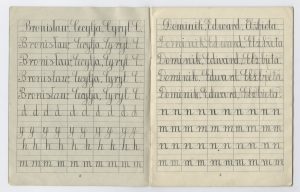 Bronisław, Cecylja, Cyryl C.
Bronisław, Cecylja, Cyryl C.
Bronisław, Cecylja, Cyryl C.
Bronisław, Cecylja, Cyryl C.
Bronisław, Cecylja, Cyryl C.
d d d d d d d d d
y y y y y y y y y
h h h h h h h h h
m m m m m m m
Dominik, Edward, Elżbieta.
Dominik, Edward, Elżbieta.
Dominik, Edward, Elżbieta.
Dominik, Edward, Elżbieta.
Dominik, Edward, Elżbieta.
n n n n n n n n
n n n n n n n n
m m m m m m m
m m m m m m m